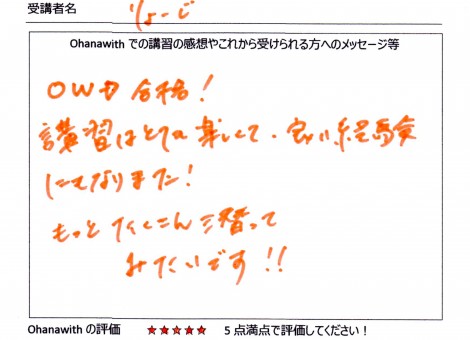 受講者名 りょーじ
Ohanawith での講習の感想やこれから受けられる方へのメッセージ等
OWD 合格!
講習はとても楽しくて、良い経験
になりました!
もっとたくさん潜って
みたいです!!
Ohanawith の評価 ★★★★★ 5点満点で評価してください!